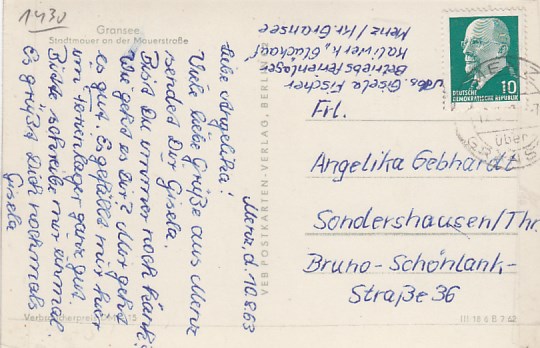 1430
Gransee
Stadtmauer an der Mauerstraße
Menz, d. 10.8.63
Liebe Angelika!
Viele liebe Grüße aus Menz
sendet Dir Gisela.
Bist Du immer noch krank?
Wie geht es Dir? Mir geht
es gut. Es gefällt mir hier
im Ferienlager ganz gut.
Bitte, schreibe mir einmal.
Es grüßt Dich nochmals
Gisela
Verbraucherpreis DM 0,15
VEB POSTKARTEN-VERLAG, BERLIN
Abs. Gisela Fischer
Betriebsferienlager
Kaliwerk „Glückauf"
Menz / Kr. Gransee
DEUTSCHE
DEMOKRATISCHE REPUBLIK
10
MENZ
über
Frl.
Angelika Gebhardt
Sondershausen/Thr.
Bruno-Schönlank-
Straße 36
III 18 6 B 7 62